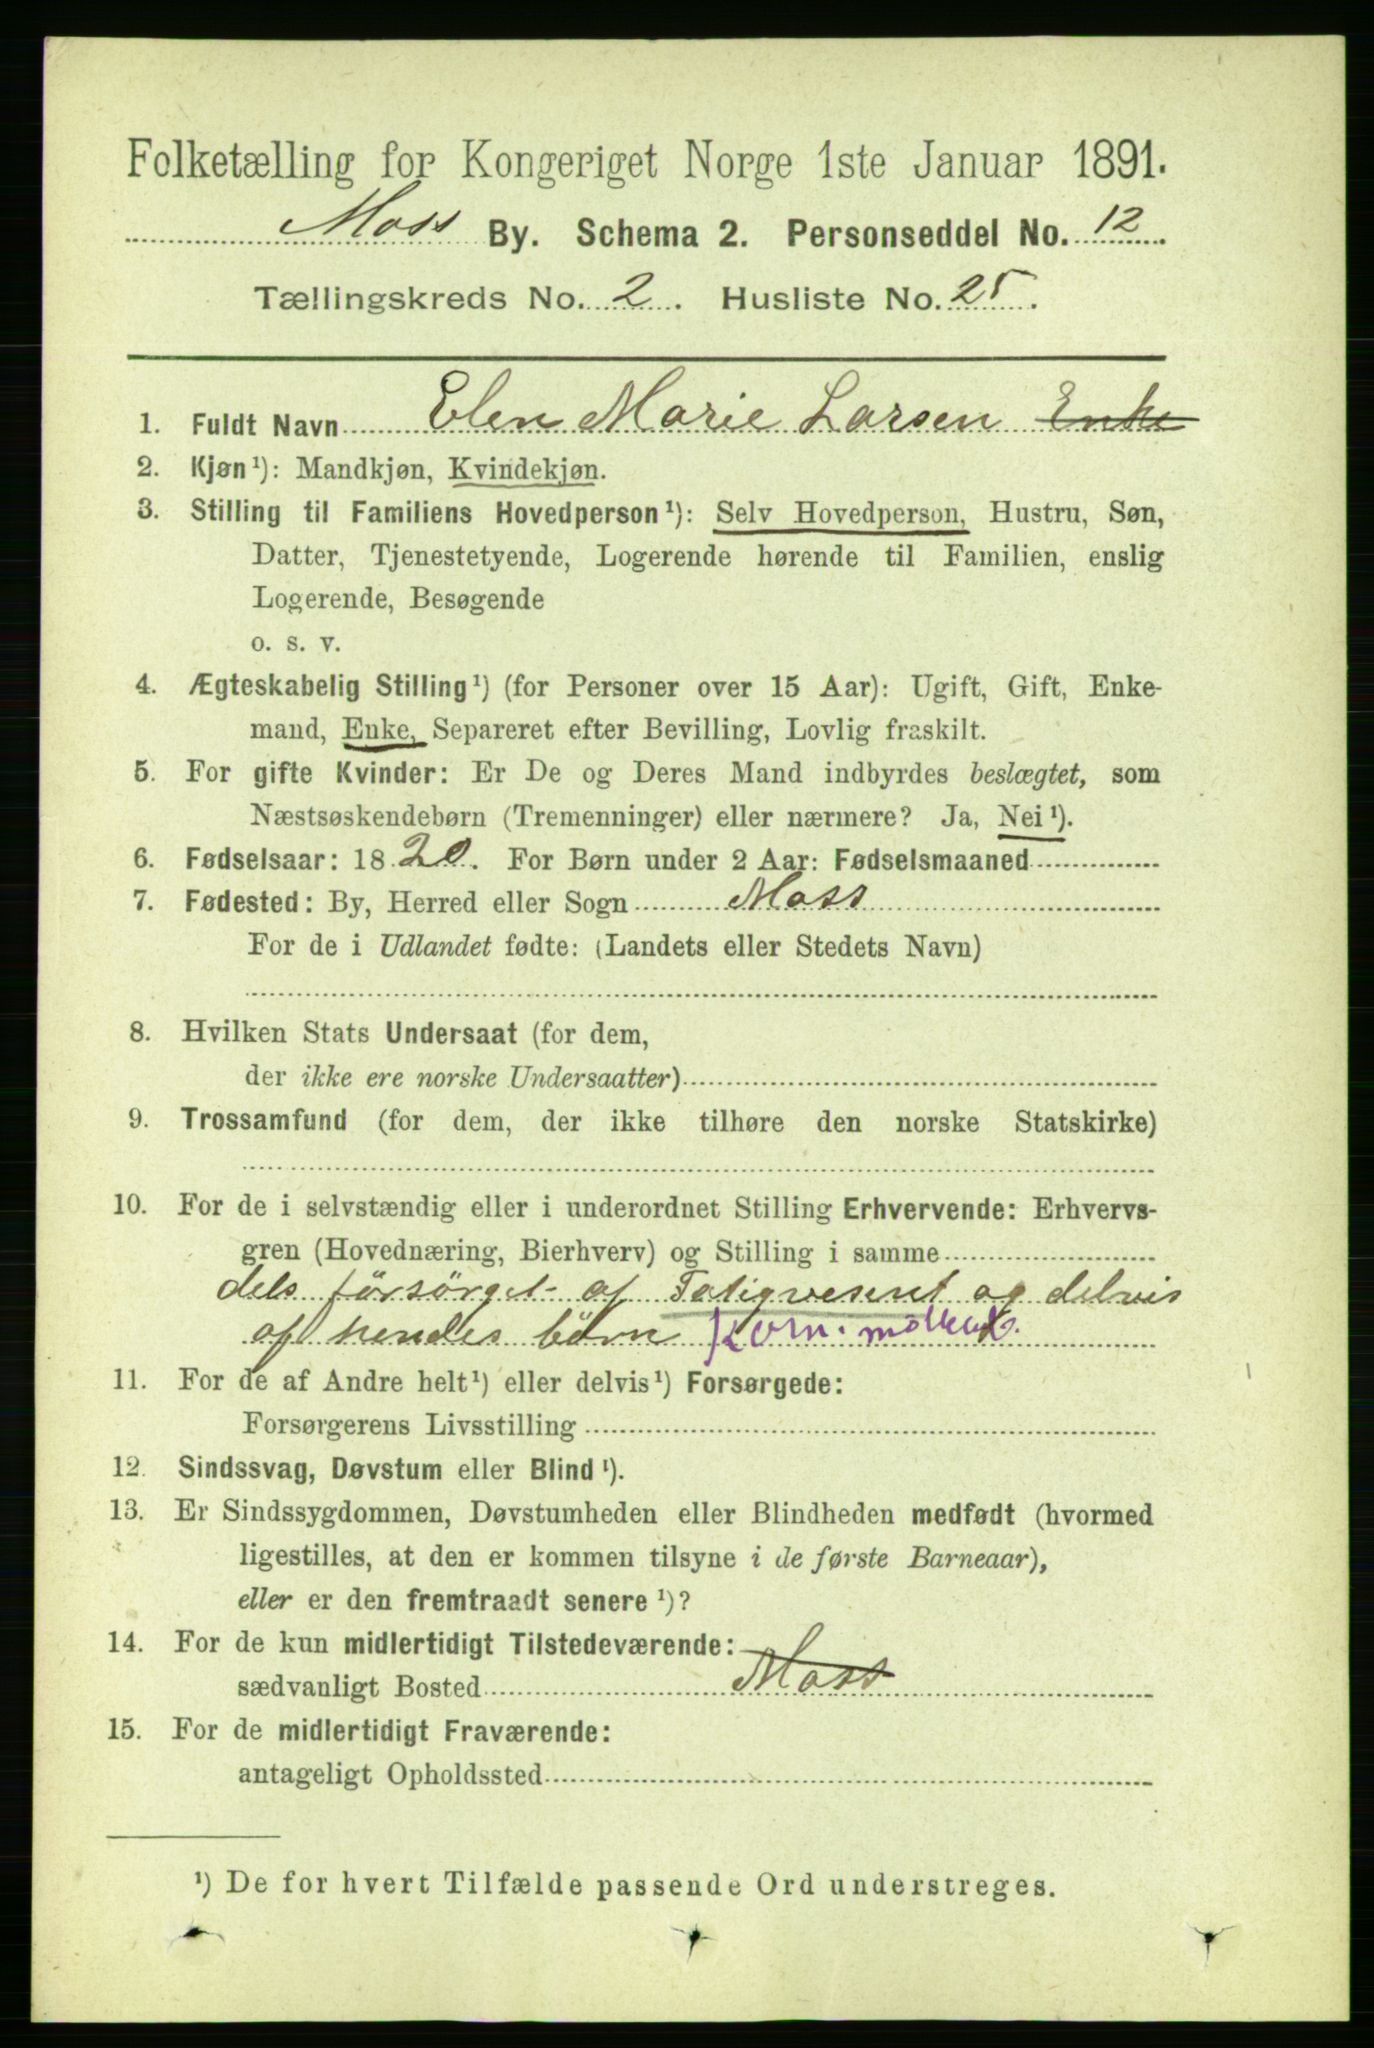 Folketælling for Kongeriget Norge 1ste Januar 1891.
Moss By. Schema 2. Personseddel No. 12
Tællingskreds No. 2. Husliste No. 25.
1. Fuldt Navn Elen Marie Larsen Enke
2. Kjøn¹): Mandkjøn, Kvindekjøn.
3. Stilling til Familiens Hovedperson¹): Selv Hovedperson, Hustru, Søn,
Datter, Tjenestetyende, Logerende hørende til Familien, enslig
Logerende, Besøgende
o. s. v.
4. Ægteskabelig Stilling¹) (for Personer over 15 Aar): Ugift, Gift, Enke-
mand, Enke, Separeret efter Bevilling, Lovlig fraskilt.
5. For gifte Kvinder: Er De og Deres Mand indbyrdes beslægtet, som
Næstsøskendebørn (Tremenninger) eller nærmere? Ja, Nei¹).
6. Fødselsaar: 1820. For Børn under 2 Aar: Fødselsmaaned
7. Fødested: By, Herred eller Sogn Moss
For de i Udlandet fødte: (Landets eller Stedets Navn)
8. Hvilken Stats Undersaat (for dem,
der ikke ere norske Undersaatter)
9. Trossamfund (for dem, der ikke tilhøre den norske Statskirke)
10. For de i selvstændig eller i underordnet Stilling Erhvervende: Erhvervs-
gren (Hovednæring, Bierhverv) og Stilling i samme
dels försörget af Fatigvesenet og delvis
af hendes börn Korn.
11. For de af Andre helt¹) eller delvis¹) Forsørgede:
Forsørgerens Livsstilling
12. Sindssvag, Døvstum eller Blind¹).
13. Er Sindssygdommen, Døvstumheden eller Blindheden medfødt (hvormed
ligestilles, at den er kommen tilsyne i de første Barneaar),
eller er den fremtraadt senere¹)?
14. For de kun midlertidigt Tilstedeværende:
sædvanligt Bosted Moss
15. For de midlertidigt Fraværende:
antageligt Opholdssted
¹) De for hvert Tilfælde passende Ord understreges.